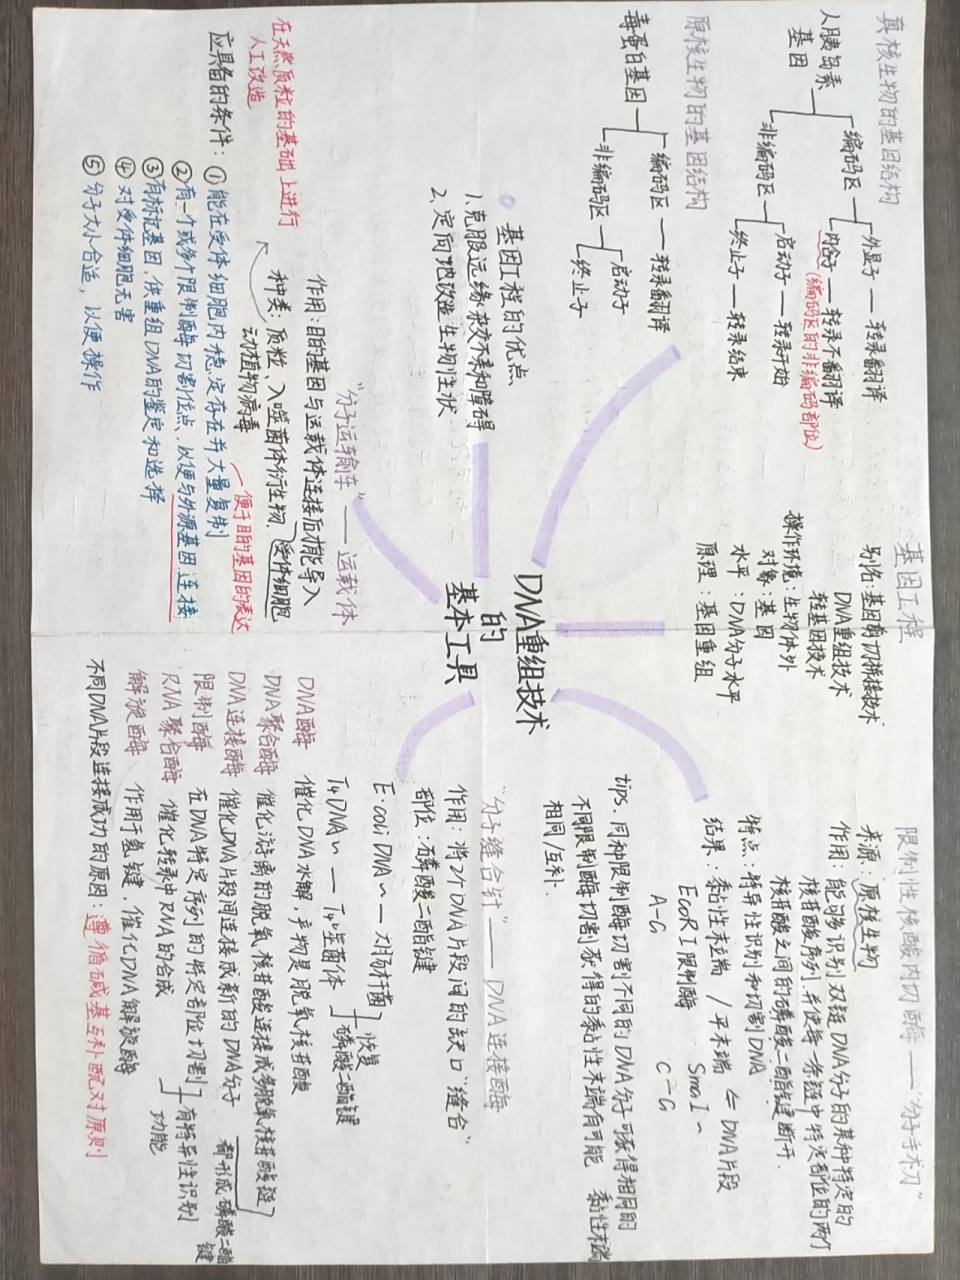 真核生物的基因结构
人胰岛素基因
编码区
外显子 — 转录翻译
内含子 — 转录不翻译
(编码区的非编码部位)
非编码区
启动子 — 转录开始
终止子 — 转录结束
原核生物的基因结构
毒蛋白基因
编码区 — 转录翻译
非编码区
启动子
终止子
基因工程的优点
1、克服远缘杂交不亲和障碍
2、定向地改造生物性状
基因工程
别名:基因剪切拼接技术
DNA重组技术
转基因技术
操作环境:生物体外
对象:基因
水平:DNA分子水平
原理:基因重组
DNA重组技术
的
基本工具
限制性核酸内切酶 —— "分子手术刀"
来源:原核生物
作用:能够识别双链DNA分子的某种特定的
核苷酸序列,并使每一条链中特定部位的两个
核苷酸之间的磷酸二酯键断开.
特点:特异性识别和切割DNA
结果:黏性末端 / 平末端 ← DNA片段
EcoRI限制酶 SmaI ~
A-G C-G
tips.同种限制酶切割不同的DNA分子可获得相同的黏性末端
不同限制酶切割获得的黏性末端有可能
相同/互补.
"分子缝合针" —— DNA连接酶
作用:将2个DNA片段间的缺口"缝合"
部位:磷酸二酯键
E·coli DNA~ — 大肠杆菌
T4DNA~ — T4噬菌体
恢复
磷酸二酯键
DNA酶 催化DNA水解,产物是脱氧核苷酸
DNA聚合酶 催化游离的脱氧核苷酸连接成多脱氧核苷酸链
DNA连接酶 催化DNA片段间连接成新的DNA分子
都形成磷酸二酯键
限制酶 在DNA特定序列的特定部位切割
RNA聚合酶 催化转录中RNA的合成
有特异性识别功能
解旋酶 作用于氢键,催化DNA解旋酶
不同DNA片段连接成功的原因:遵循碱基互补配对原则
"分子运输车" —— 运载体
作用:目的基因与运载体连接后才能导入受体细胞
种类:质粒、λ噬菌体衍生物、
动植物病毒
便于目的基因的表达
在天然质粒的基础上进行
人工改造
应具备的条件:①能在受体细胞内稳定存在并大量复制
②有一个或多个限制酶切割位点,以便与外源基因连接
③有标记基因,供重组DNA的鉴定和选择
④对受体细胞无害
⑤分子大小合适,以便操作